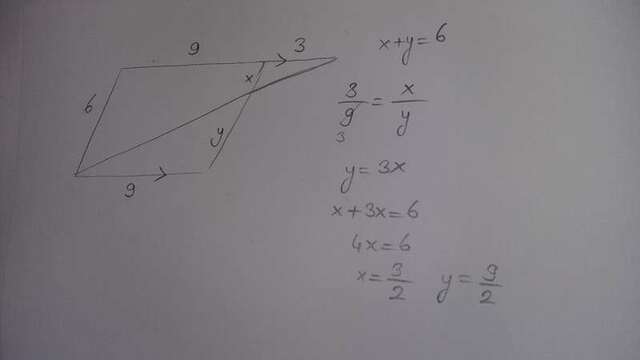 9
3
x
6
y
9
x+y=6
3/9=x/y
3
y=3x
x+3x=6
4x=6
x=3/2 y=9/2